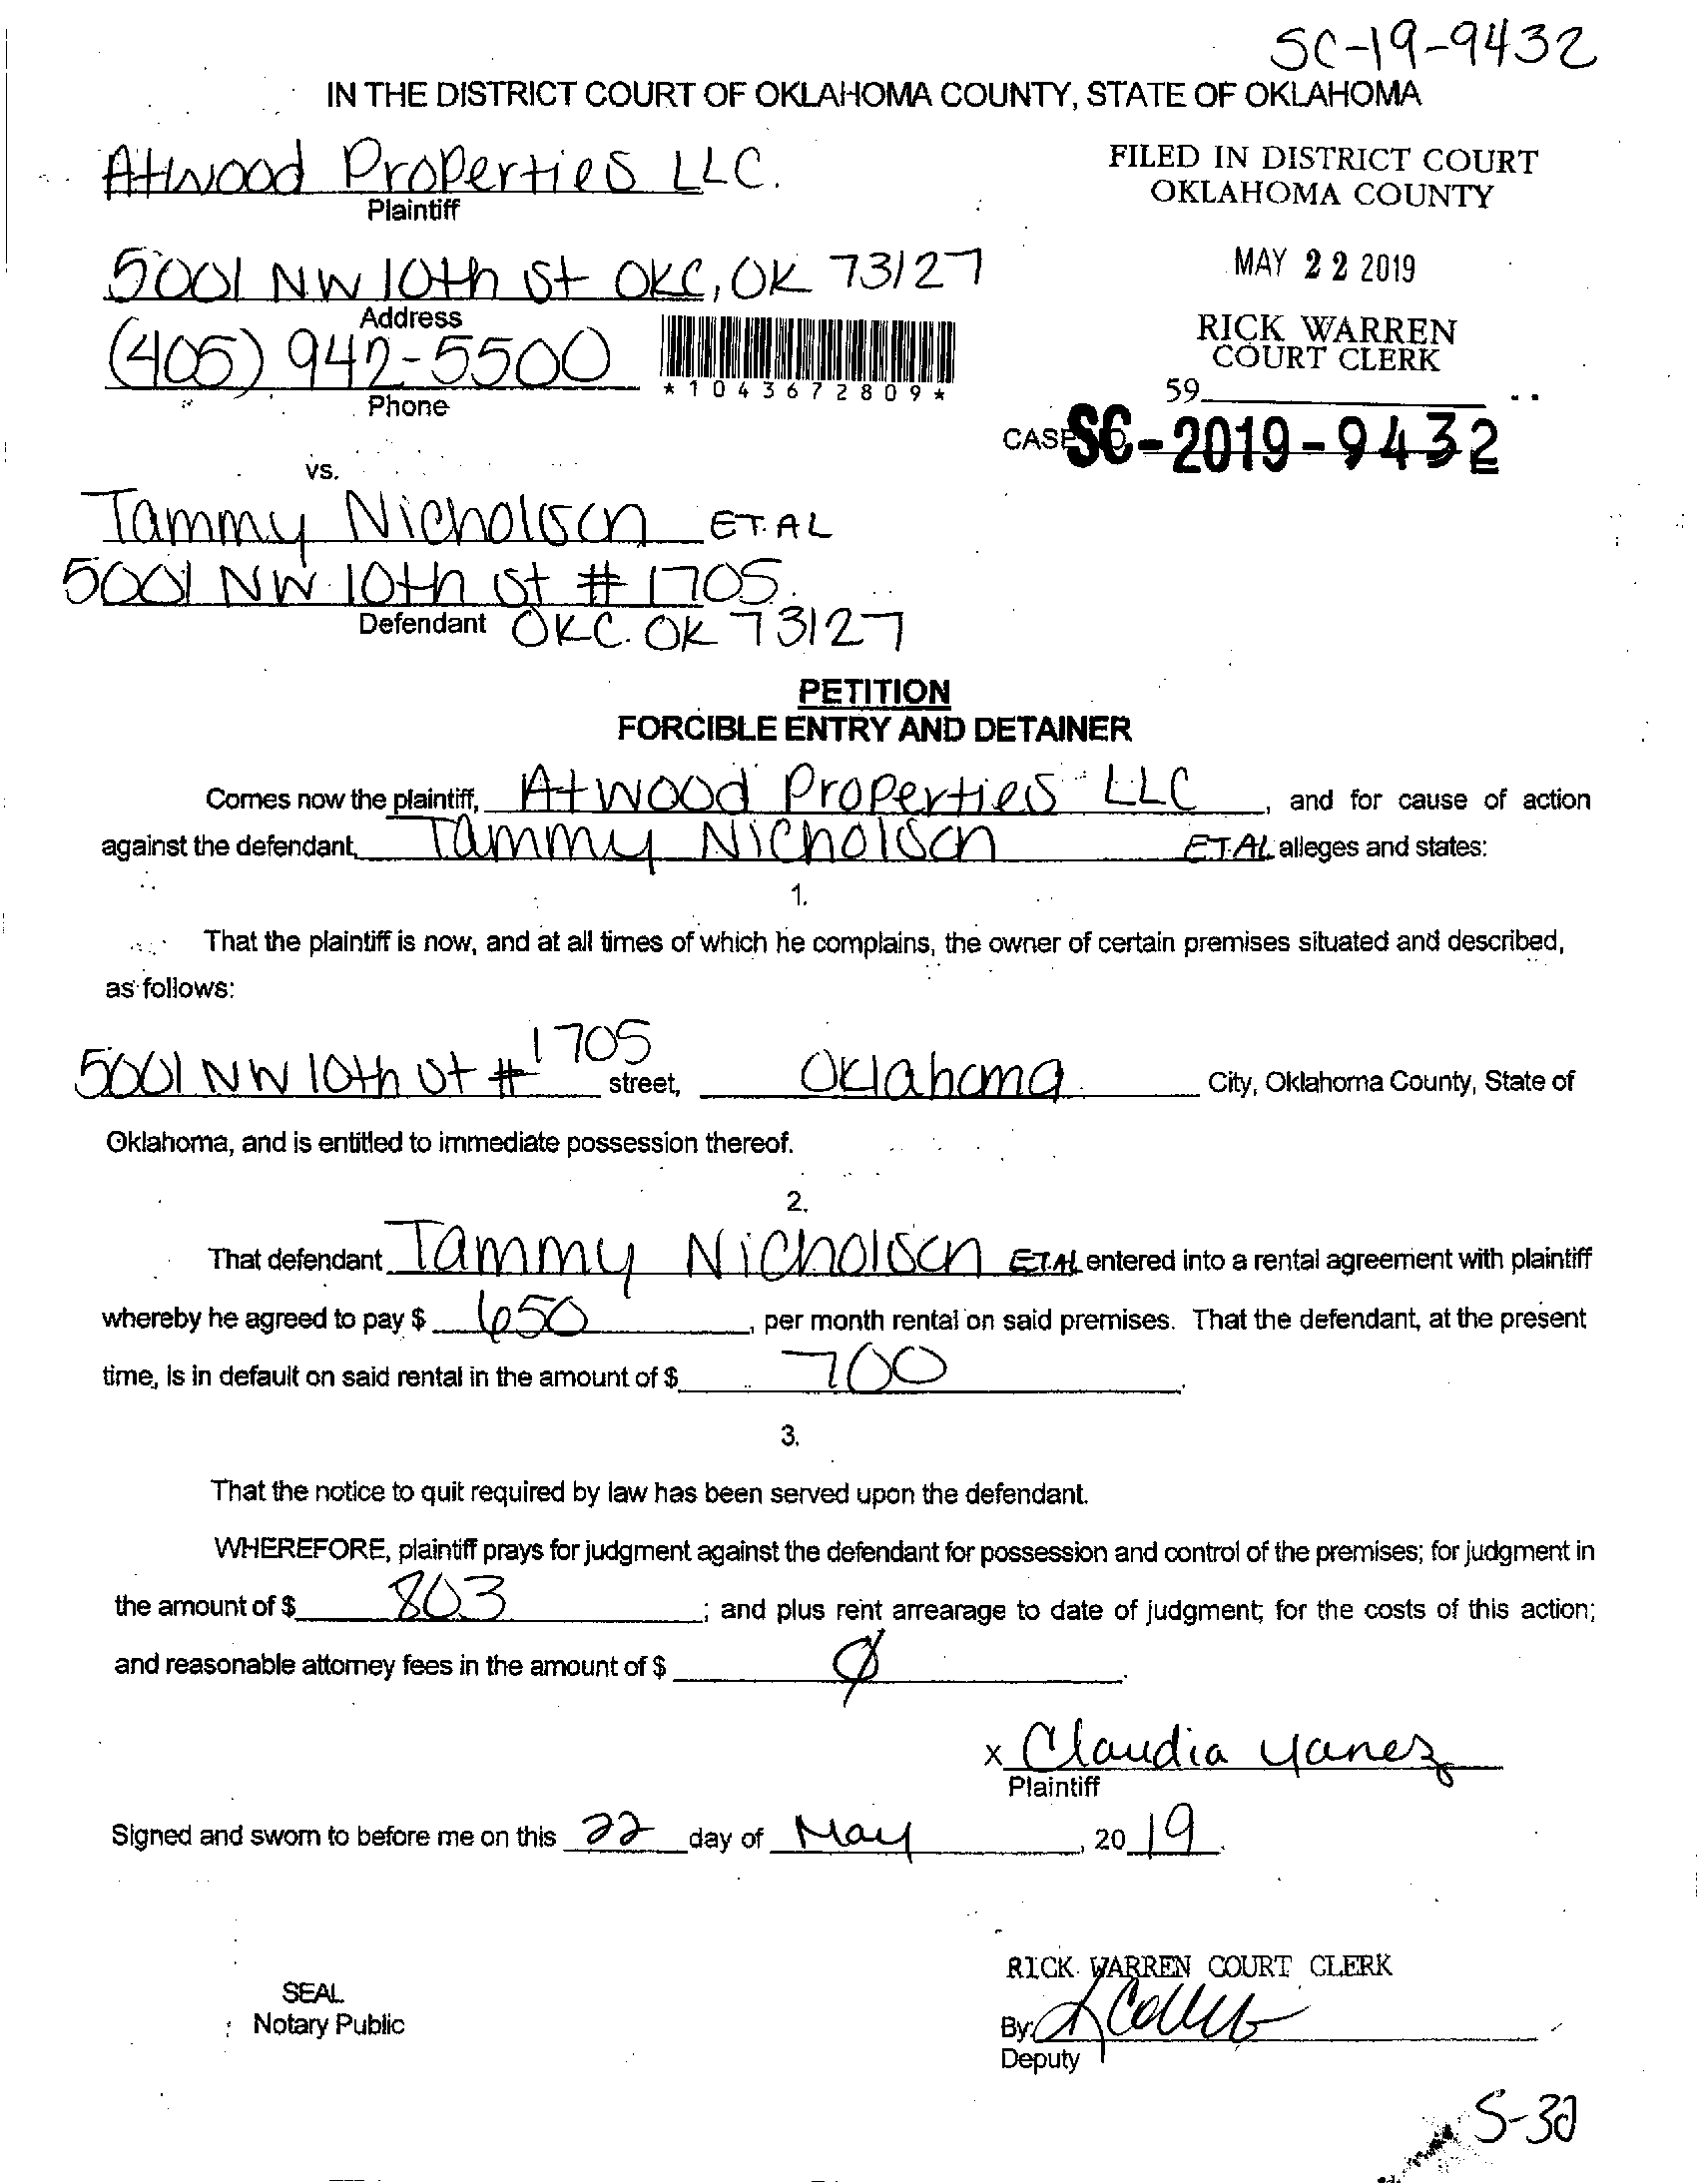 SC-19-9432
IN THE DISTRICT COURT OF OKLAHOMA COUNTY, STATE OF OKLAHOMA
Atwood Properties LLC.
Plaintiff
FILED IN DISTRICT COURT
OKLAHOMA COUNTY
5001 NW 10th St OKC, OK 73127
Address
MAY 22 2019
(405) 942-5500
Phone
*1043672809*
RICK WARREN
COURT CLERK
59
CASE SC-2019-9432
vs.
Tammy Nicholson ET. AL
5001 NW 10th St # 1705
Defendant OKC. OK 73127
PETITION
FORCIBLE ENTRY AND DETAINER
Comes now the plaintiff, Atwood Properties LLC, and for cause of action
against the defendant, Tammy Nicholson ET.AL alleges and states:
1.
That the plaintiff is now, and at all times of which he complains, the owner of certain premises situated and described,
as follows:
5001 NW 10th St # 1705 street, Oklahoma City, Oklahoma County, State of
Oklahoma, and is entitled to immediate possession thereof.
2.
That defendant Tammy Nicholson ET.AL entered into a rental agreement with plaintiff
whereby he agreed to pay $ 650, per month rental on said premises. That the defendant, at the present
time, is in default on said rental in the amount of $ 700.
3.
That the notice to quit required by law has been served upon the defendant.
WHEREFORE, plaintiff prays for judgment against the defendant for possession and control of the premises; for judgment in
the amount of $ 803; and plus rent arrearage to date of judgment; for the costs of this action;
and reasonable attorney fees in the amount of $ Ø.
x Claudia Yanez
Plaintiff
Signed and sworn to before me on this 22 day of May, 2019.
RICK WARREN COURT CLERK
SEAL
Notary Public
By:
Deputy
S-30